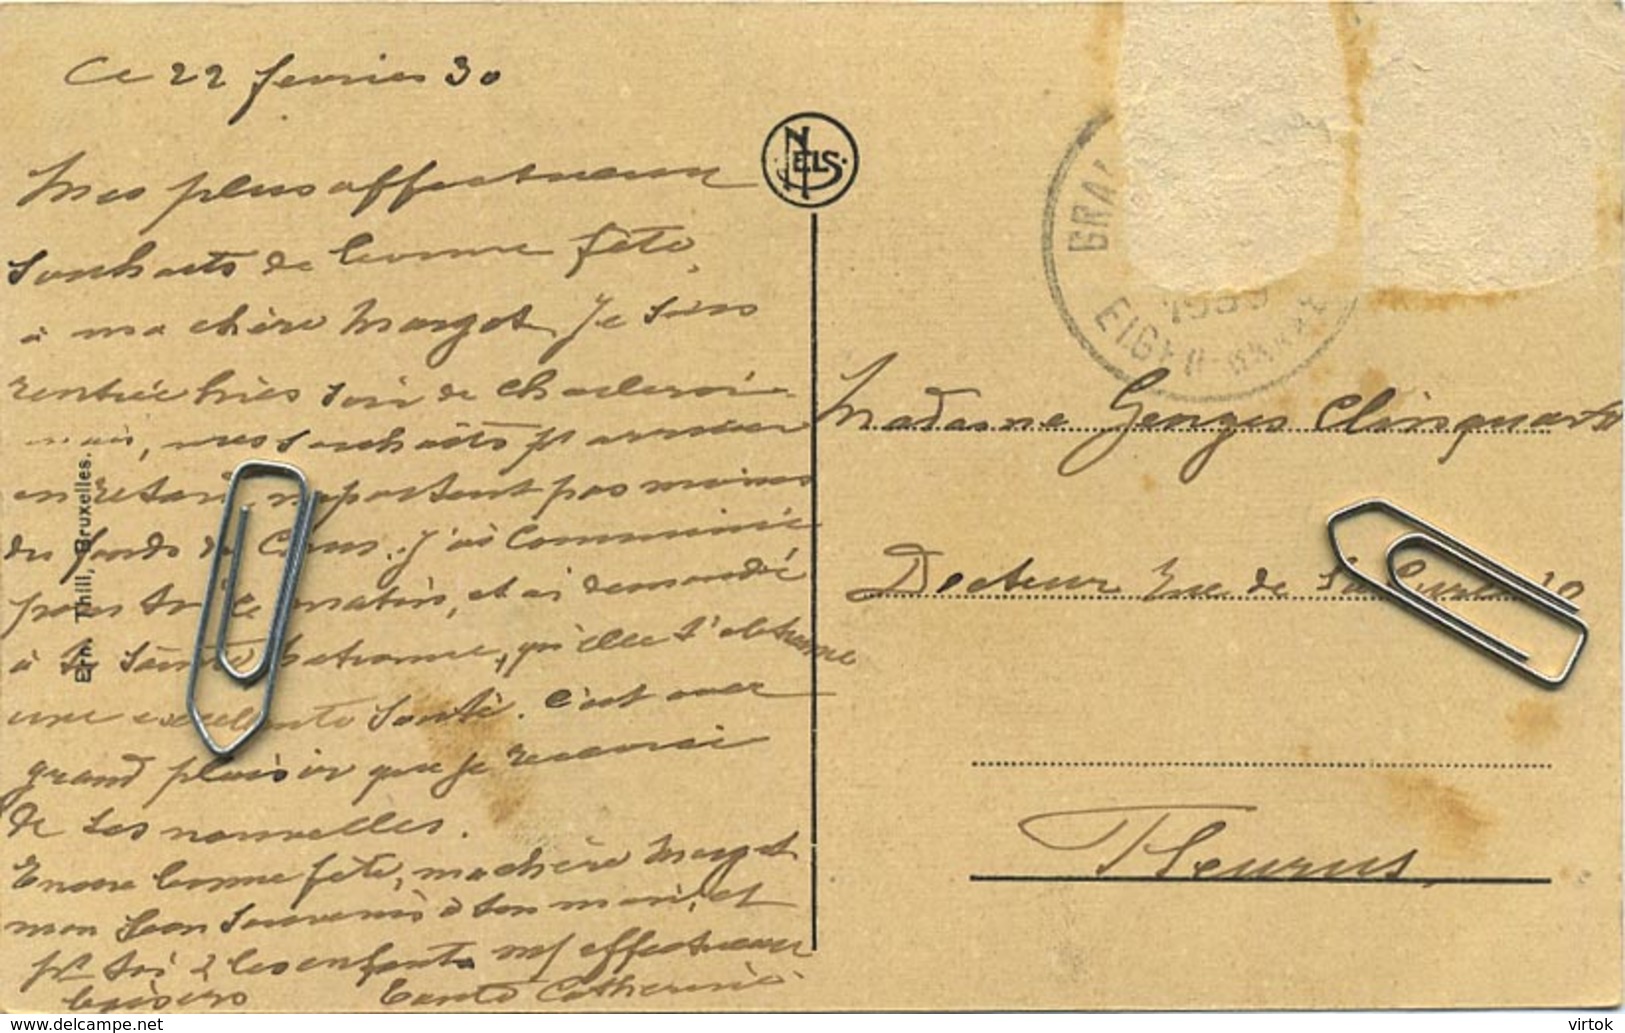 Ce 22 fevrier 30
Mes plus affectueux
Souhaits de bonne fête,
à ma chère Margot, Je suis
rentrée hier soir de Charleroi
mais, mes souhaits p arriver
en retard, n'partent pas moins
du fonds du Cœur. J'ai Communié
pour toi le matin, et ai demandé
à ta Sainte patronne, qu'elle t'obtienne
une excellente Santé. C'est avec
grand plaisir que je recevrai
de tes nouvelles.
Encore bonne fête, ma chère Margot
mon bon Souvenir à ton mari, et
pr toi & les enfants mes affectueux
baisers Tante Catherine
Ern. Thill, Bruxelles.
NELS
BRA
1930
EIGEN
Madame Georges Clinquart
Docteur Rue de
Fleurus
virtok